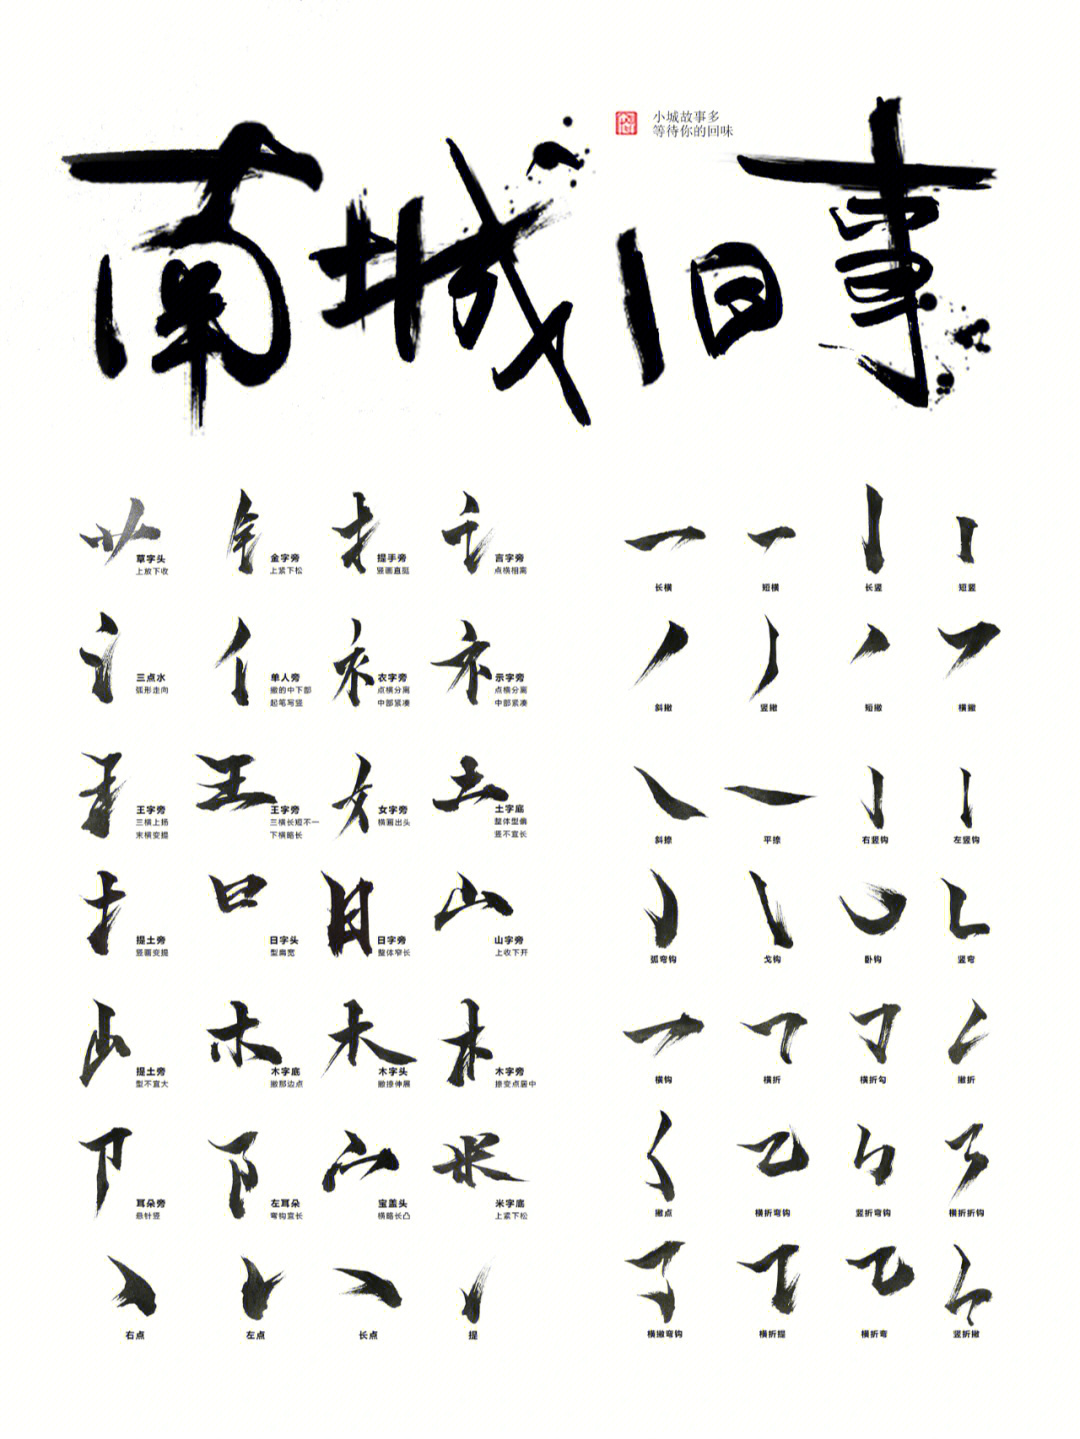 南城旧事
小城故事多
等待你的回味
草字头
上放下收
金字旁
上紧下松
提手旁
竖画直挺
言字旁
点横相离
长横
短横
长竖
短竖
三点水
弧形走向
单人旁
撇的中下部
起笔写竖
衣字旁
点横分离
中部紧凑
示字旁
点横分离
中部紧凑
斜撇
竖撇
短撇
横撇
王字旁
三横上扬
末横变提
王字旁
三横长短不一
下横略长
女字旁
横画出头
土字底
整体型偏
竖不宜长
斜捺
平捺
右竖钩
左竖钩
提土旁
竖画变提
日字头
型扁宽
日字旁
整体窄长
山字旁
上收下开
弧弯钩
戈钩
卧钩
竖弯
提土旁
型不宜大
木字底
撇那边点
木字头
撇捺伸展
木字旁
捺变点居中
横钩
横折
横折勾
撇折
耳朵旁
悬针竖
左耳朵
弯钩宜长
宝盖头
横略长凸
米字底
上紧下松
撇点
横折弯钩
竖折弯钩
横折折钩
右点
左点
长点
提
横撇弯钩
横折提
横折弯
竖折撇